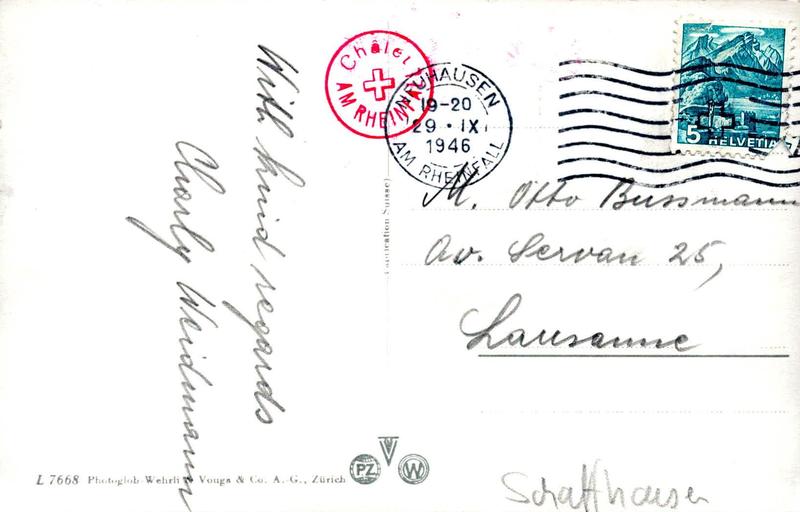 With kind regards
Charly Weidmann
Châlet
AM RHEINFALL
NEUHAUSEN
19-20
29 · IX
1946
AM RHEINFALL
5
HELVETIA
M. Otto Bussmann
Av. Servan 25,
Lausanne
L 7668 Photoglob-Wehrli & Vouga & Co. A.-G., Zürich
PZ
V
W
Schaffhausen